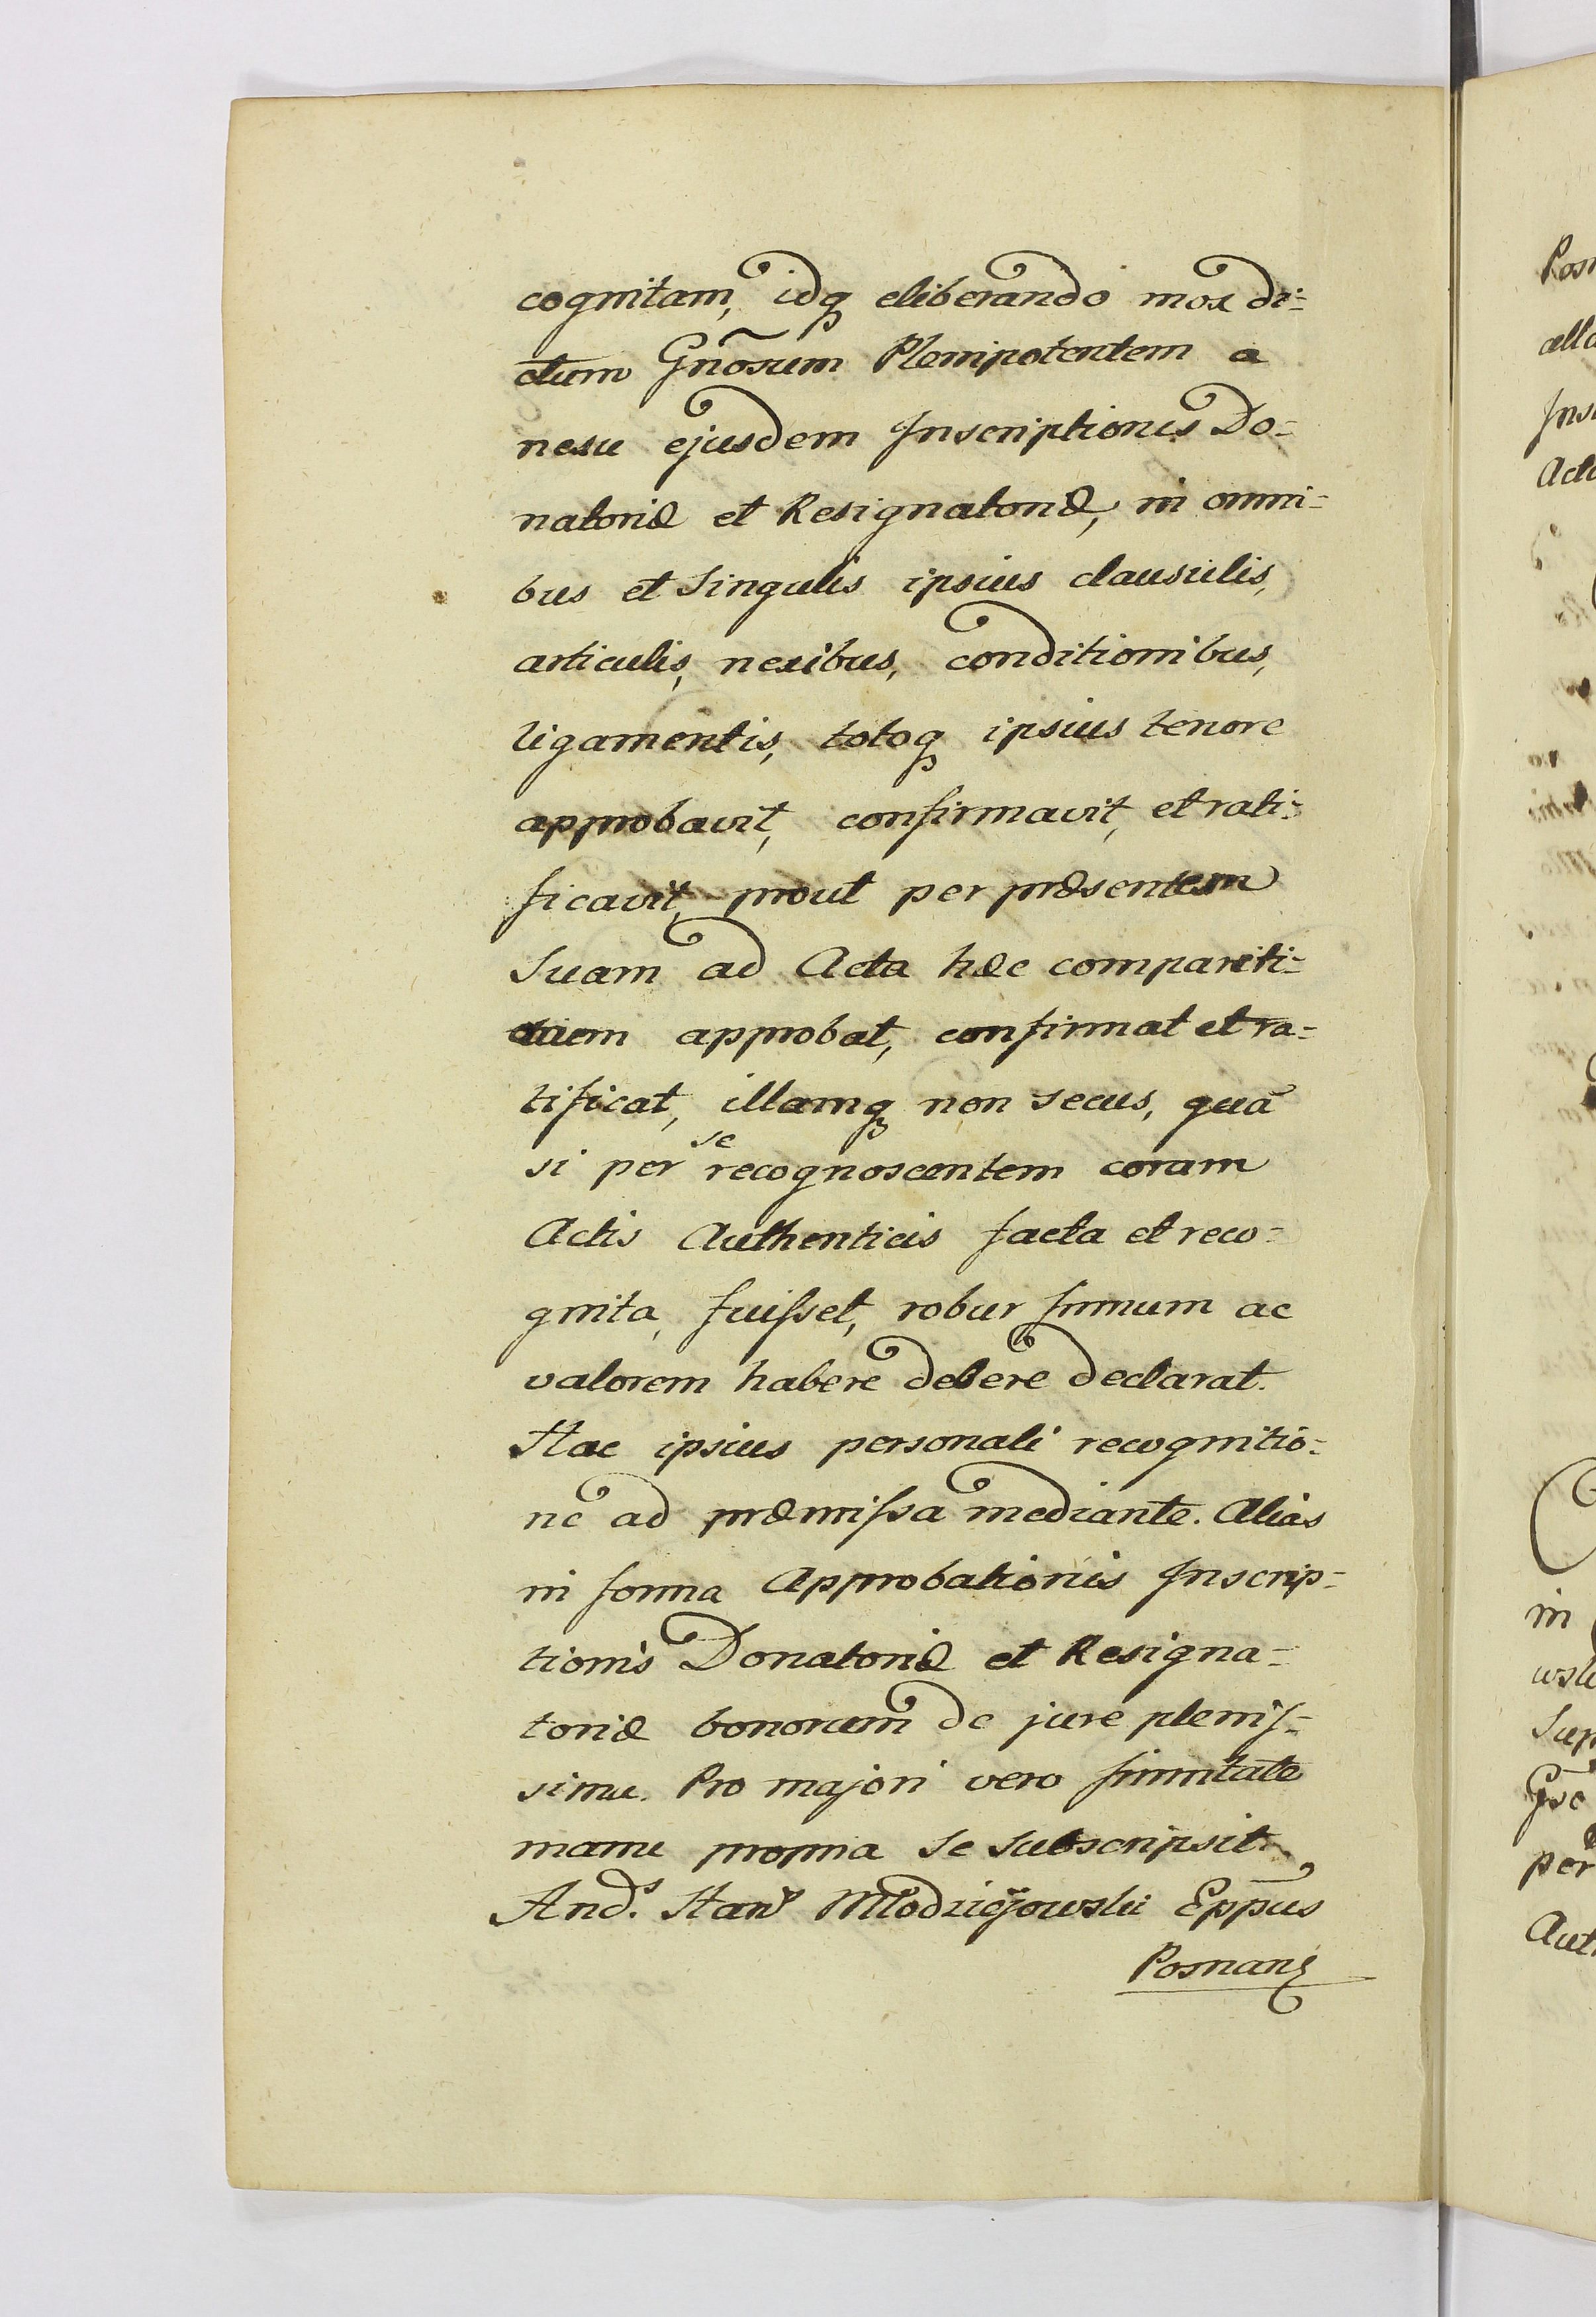 cognitam, idq eliberando mox di=
ctum Gnõsum Plenipotentem a
nexu ejusdem Inscriptionis Do=
natoriæ et Resignatoriæ, in omni=
bus et Singulis ipsius clausulis,
articulis, nexibus, conditionibus,
ligamentis, totoq ipsius tenore
approbavit, confirmavit, et rati=
ficavit, prout per præsentem
Suam ad Acta hæc compariti=
onem approbat, confirmat et ra=
tificat, illamq non secus, quã
si per se recognoscentem coram
Actis Authenticis facta et reco=
gnita, fuisset, robur firmum ac
valorem habere debere declarat.
Hac ipsius personali recognitio=
ne ad præmissa mediante. Alias
in forma Approbationis Inscrip=
tionis Donatoriæ et Resigna=
toriæ bonorum de jure plenis=
simu. Pro majori vero firmitate
manu propria Se Subscripsit.
And.s Stans Młodzieÿowski Epp̃us
Posnan
Pos
in
per
Aut